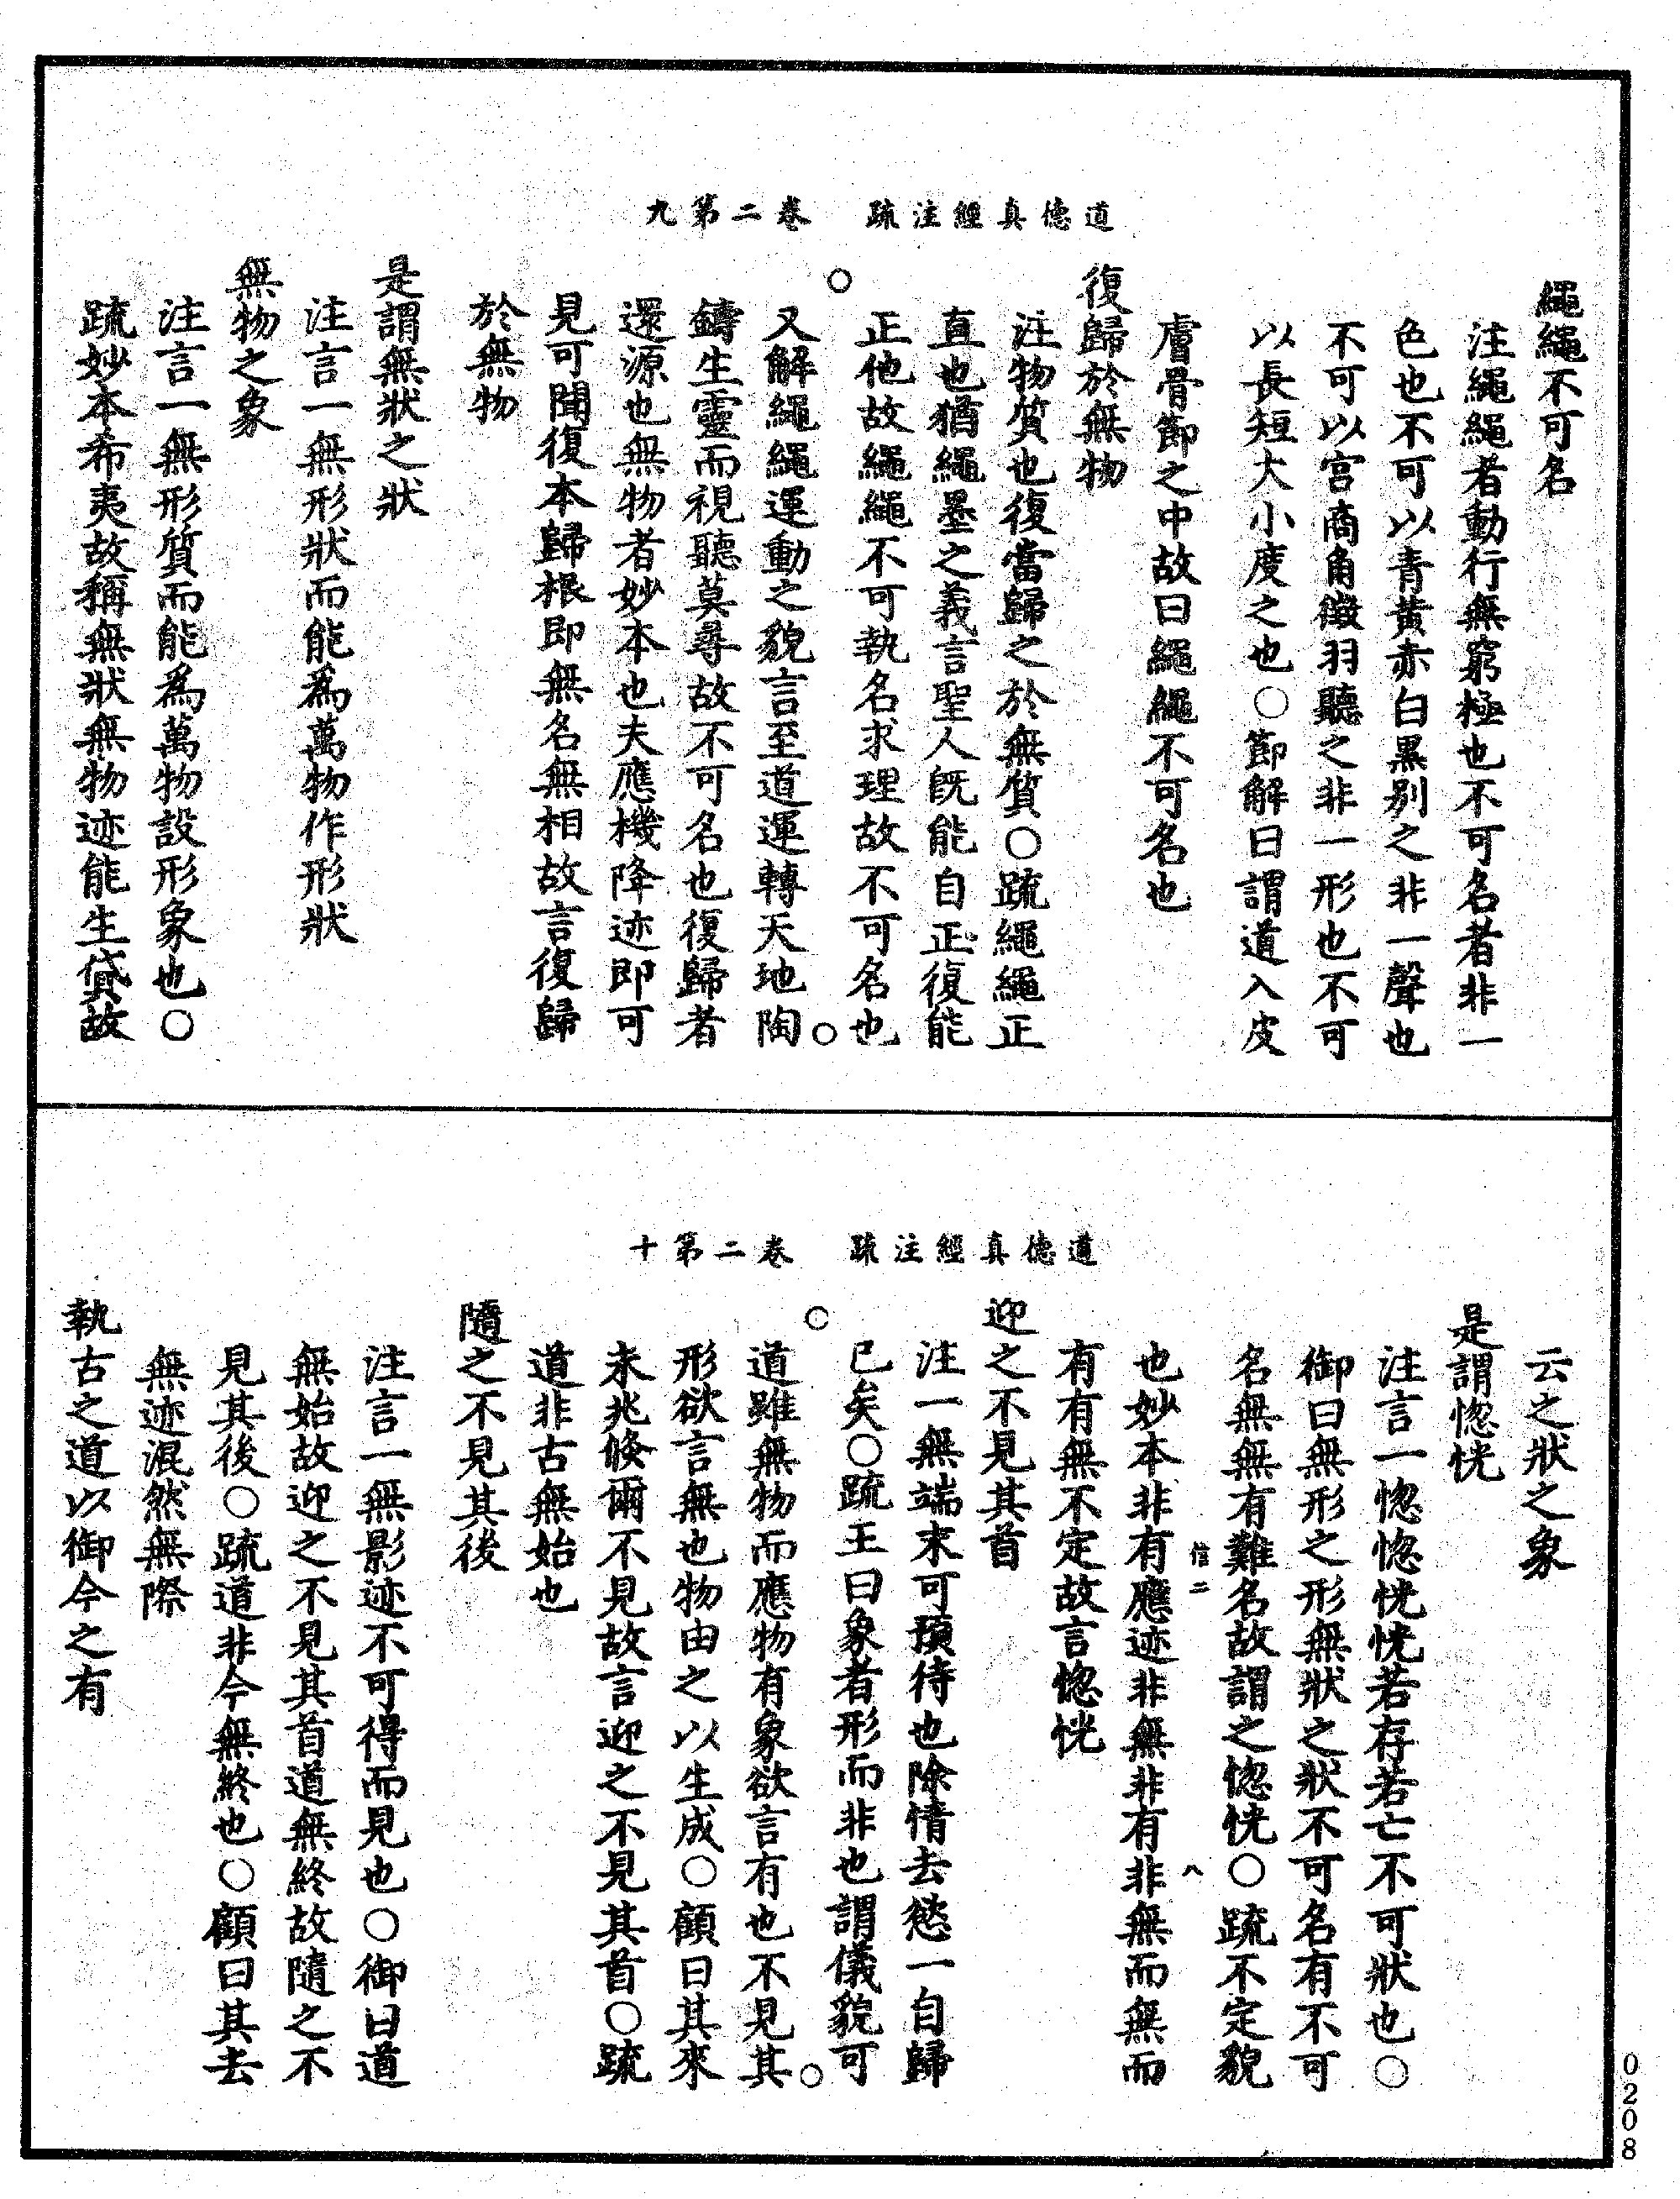 道德真經注疏　卷二第九
繩繩不可名
注繩繩者動行無窮極也不可名者非一
色也不可以青黃赤白黑別之非一聲也
不可以宮商角徵羽聽之非一形也不可
以長短大小度之也○節解曰謂道入皮
膚骨節之中故曰繩繩不可名也
復歸於無物
注物質也復當歸之於無質○疏繩繩正
直也猶繩墨之義言聖人既能自正復能
正他故繩繩不可執名求理故不可名也
○
○
又解繩繩運動之貌言至道運轉天地陶
鑄生靈而視聽莫尋故不可名也復歸者
還源也無物者妙本也夫應機降迹即可
見可聞復本歸根即無名無相故言復歸
於無物
是謂無狀之狀
注言一無形狀而能為萬物作形狀
無物之象
注言一無形質而能為萬物設形象也○
疏妙本希夷故稱無狀無物迹能生貸故
道德真經注疏　卷二第十
云之狀之象
是謂惚恍
注言一惚惚恍恍若存若亡不可狀也○
御曰無形之形無狀之狀不可名有不可
名無無有難名故謂之惚恍○疏不定貌
信二　八
也妙本非有應迹非無非有非無而無而
有有無不定故言惚恍
迎之不見其首
注一無端末可預待也除情去慾一自歸
已矣○疏王曰象者形而非也謂儀貌可
○
○
道雖無物而應物有象欲言有也不見其
形欲言無也物由之以生成○顧曰其來
未兆倐爾不見故言迎之不見其首○疏
道非古無始也
隨之不見其後
注言一無影迹不可得而見也○御曰道
無始故迎之不見其首道無終故隨之不
見其後○疏道非今無終也○顧曰其去
無迹混然無際
執古之道以御今之有
0208